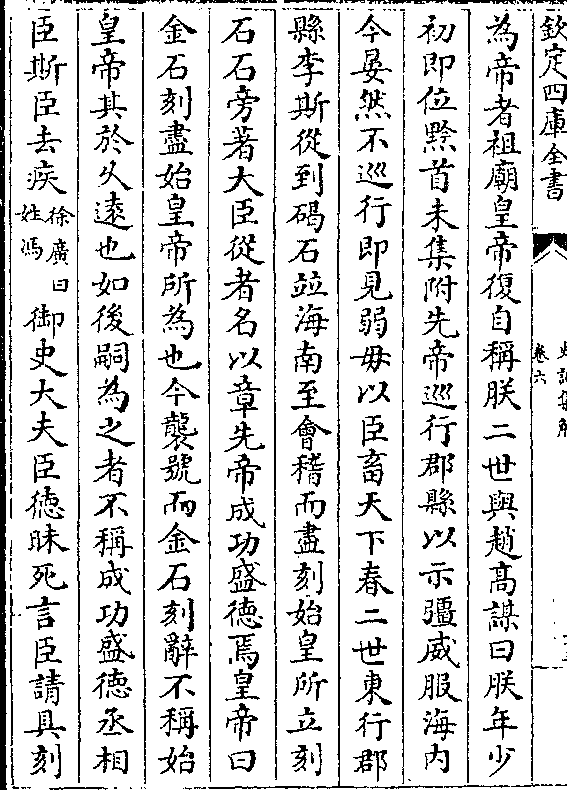 欽定四庫全書
卷六
為帝者祖廟皇帝復自稱朕二世與趙高謀曰朕年少
初即位黔首未集附先帝巡行郡縣以示彊威服海内
今晏然不巡行即見弱毋以臣畜天下春二世東行郡
縣李斯從到碣石竝海南至會稽而盡刻始皇所立刻
石石旁著大臣從者名以章先帝成功盛徳焉皇帝曰
金石刻盡始皇帝所為也今襲號而金石刻辭不稱始
皇帝其於久逺也如後嗣為之者不稱成功盛徳丞相
臣斯臣去疾徐廣曰姓馮御史大夫臣徳昧死言臣請具刻